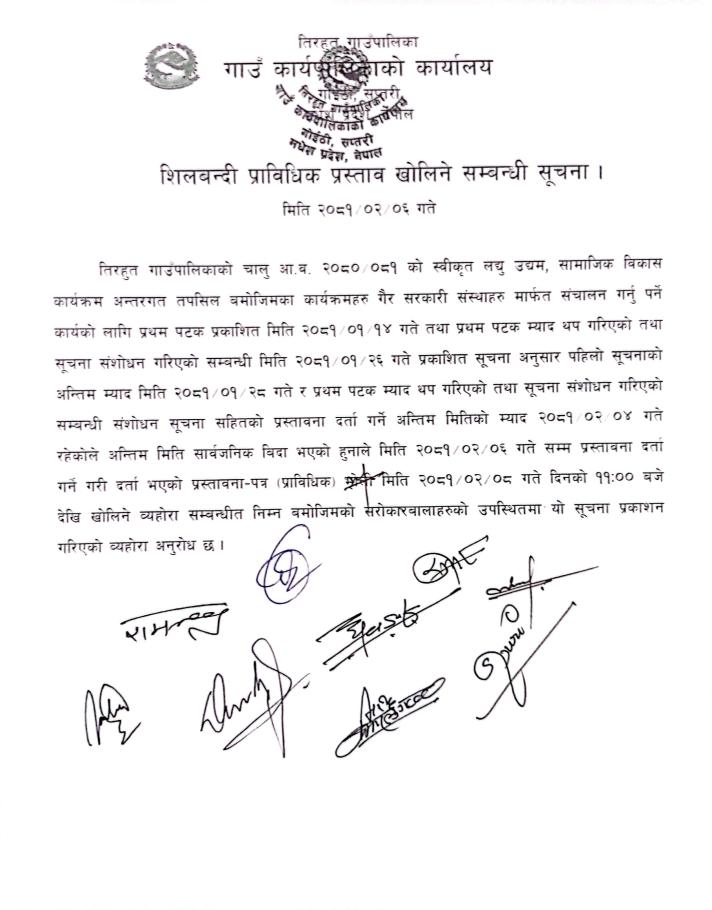 तिरहुत गाउँपालिका
गाउँ कार्यपालिकाको कार्यालय
गोइठी, सप्तरी
मधेश प्रदेश, नेपाल
तिरहुत गाउँपालिका
गाउँ कार्यपालिकाको कार्यालय
गोइठी, सप्तरी
मधेश प्रदेश, नेपाल
शिलबन्दी प्राविधिक प्रस्ताव खोलिने सम्बन्धी सूचना ।
मिति २०८१/०२/०६ गते
तिरहुत गाउँपालिकाको चालु आ.ब. २०८०/०८१ को स्वीकृत लद्यु उद्यम, सामाजिक विकास
कार्यक्रम अन्तरगत तपसिल बमोजिमका कार्यक्रमहरु गैर सरकारी संस्थाहरु मार्फत संचालन गर्नु पर्ने
कार्यको लागि प्रथम पटक प्रकाशित मिति २०८१/०१/१४ गते तथा प्रथम पटक म्याद थप गरिएको तथा
सूचना संशोधन गरिएको सम्बन्धी मिति २०८१/०१/२६ गते प्रकाशित सूचना अनुसार पहिलो सूचनाको
अन्तिम म्याद मिति २०८१/०१/२८ गते र प्रथम पटक म्याद थप गरिएको तथा सूचना संशोधन गरिएको
सम्बन्धी संशोधन सूचना सहितको प्रस्तावना दर्ता गर्ने अन्तिम मितिको म्याद २०८१/०२/०४ गते
रहेकोले अन्तिम मिति सार्वजनिक विदा भएको हुनाले मिति २०८१/०२/०६ गते सम्म प्रस्तावना दर्ता
गर्ने गरी दर्ता भएको प्रस्तावना-पत्र (प्राविधिक) मिति २०८१/०२/०८ गते दिनको ११:०० बजे
देखि खोलिने व्यहोरा सम्बन्धीत निम्न बमोजिमको सरोकारवालाहरुको उपस्थितमा यो सूचना प्रकाशन
गरिएको व्यहोरा अनुरोध छ ।